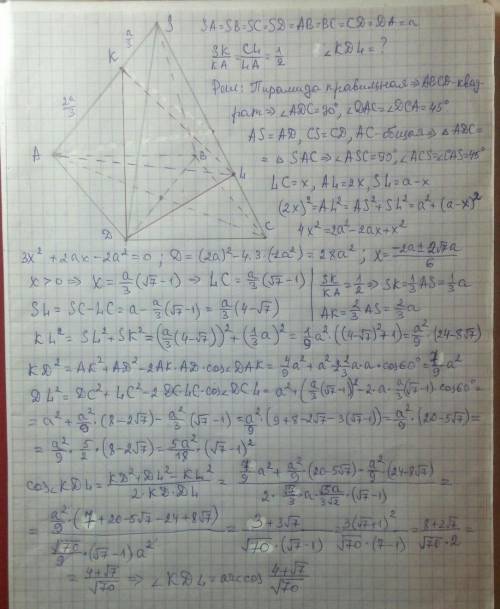 SA=SB=SC=SD=AB=BC=CD=DA=a
SK/KA = CL/LA = 1/2 ∠KDL = ?
Реш: Пирамида правильная ⇒ ABCD-квад
рат ⇒ ∠ADC=90°, ∠DAC=∠DCA=45°
AS=AD, CS=CD, AC-общая ⇒ △ADC=
=△SAC ⇒ ∠ASC=90°, ∠ACS=∠CAS=45°
LC=x, AL=2x, SL=a-x
(2x)²=AL²=AS²+SL²=a²+(a-x)²
4x²=2a²-2ax+x²
S
K
a/3
2a/3
A
B
L
D
C
3x²+2ax-2a²=0; D=(2a)²-4·3·(-2a²)=28a²; x=(-2a±2√7a)/6
x>0 ⇒ x=a/3(√7-1) ⇒ LC=a/3(√7-1) | SK/KA=1/2 ⇒ SK=1/3AS=1/3a
SL=SC-LC=a-a/3(√7-1)=a/3(4-√7) | AK=2/3AS=2/3a
KL²=SL²+SK²=(a/3(4-√7))²+(1/3a)²=1/9a²·((4-√7)²+1)=a²/9·(24-8√7)
KD²=AK²+AD²-2AK·AD·cos∠DAK=4/9a²+a²-2·2/3a·a·cos60°=7/9a²
DL²=DC²+LC²-2·DC·LC·cos∠DCL=a²+(a/3(√7-1))²-2·a·a/3(√7-1)·cos60°=
=a²+a²/9·(8-2√7)-a²/3(√7-1)=a²/9·(9+8-2√7-3(√7-1))=a²/9·(20-5√7)=
=a²/9·5/2·(8-2√7)=5a²/18·(√7-1)²
cos∠KDL=(KD²+DL²-KL²)/(2·KD·DL)=(7/9a²+a²/9·(20-5√7)-a²/9(24-8√7))/(2·√7/3·a·√5a/3√2·(√7-1))=
=(a²/9·(7+20-5√7-24+8√7))/(√70/9·(√7-1)a²)=(3+3√7)/(√70·(√7-1))=3(√7+1)²/(√70·(7-1))=(8+2√7)/(√70·2)=
=(4+√7)/√70 ⇒ ∠KDL=arccos (4+√7)/√70